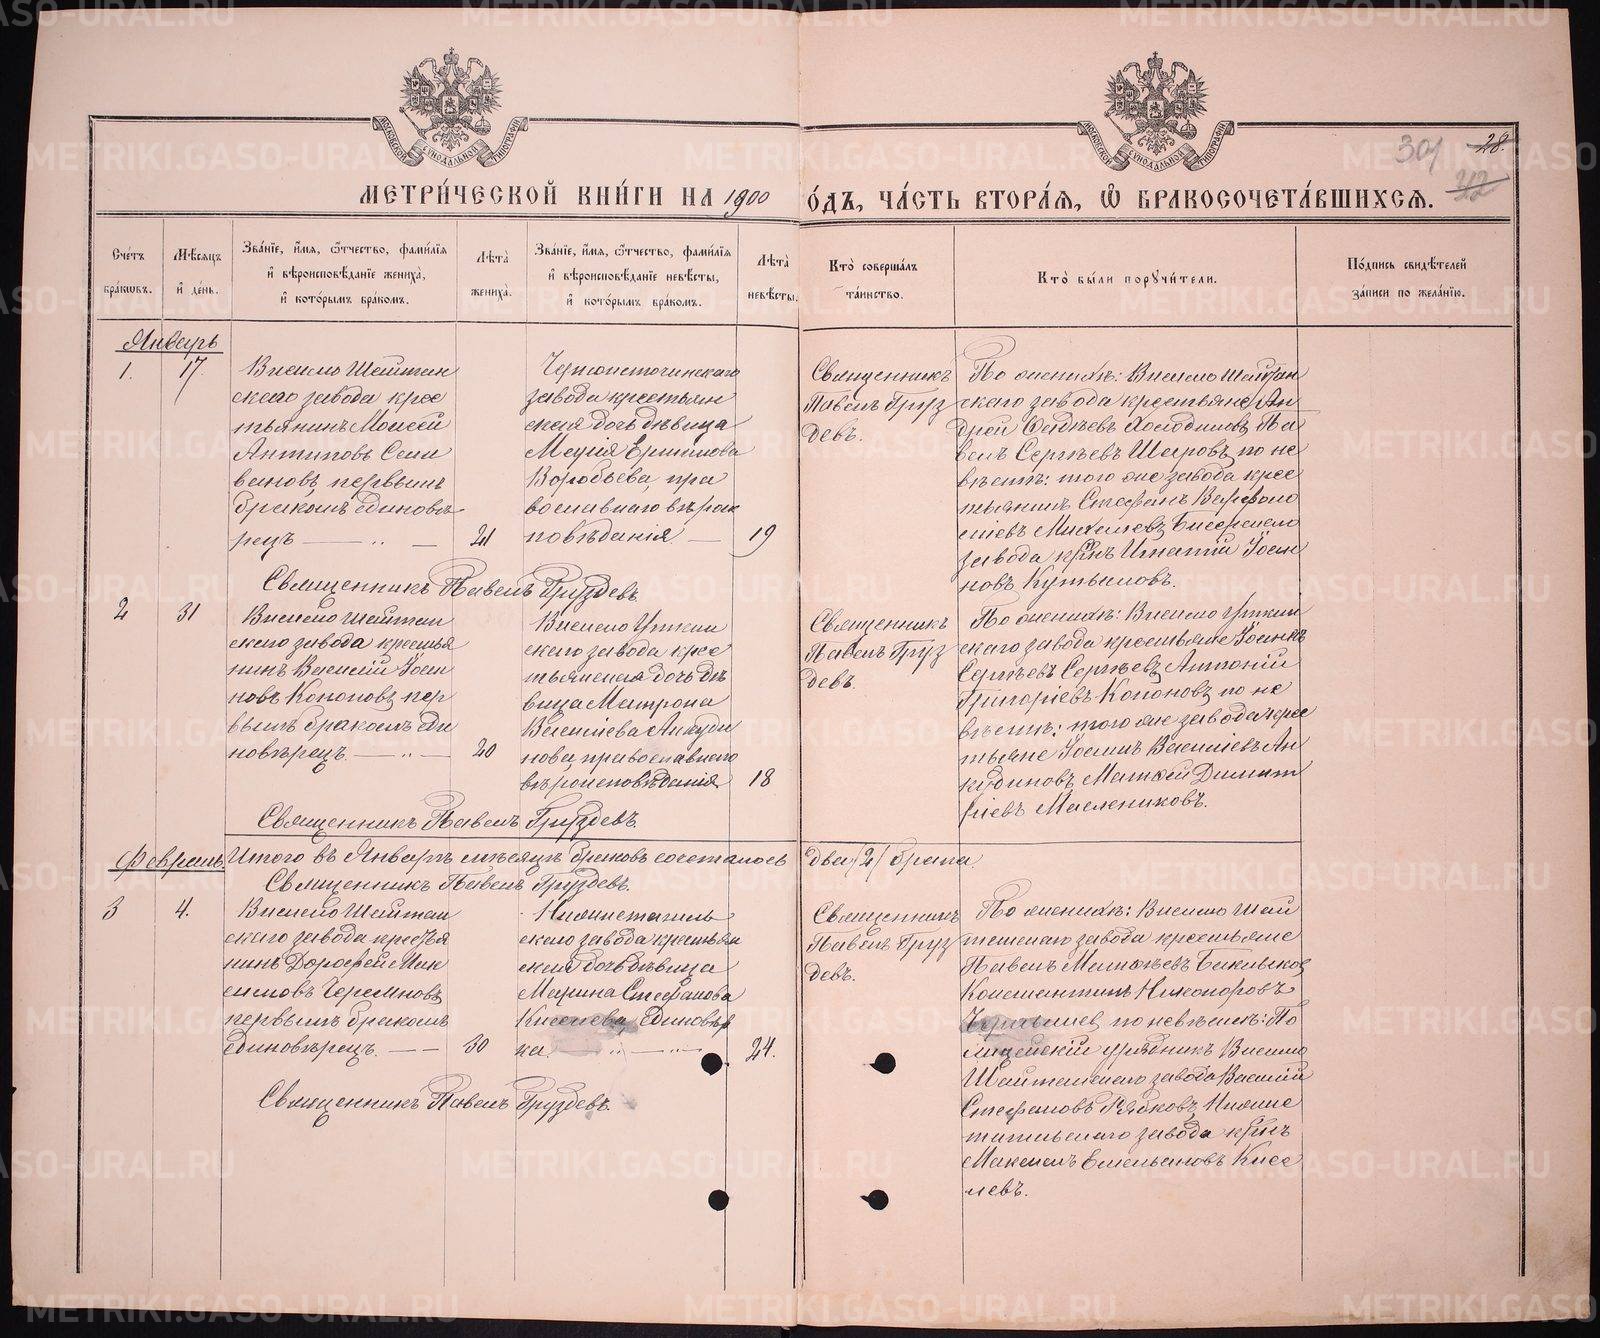 МЕТРИ́ЧЕСКОЙ КНИ́ГИ НА 1900 О́ДЪ, ЧА́СТЬ ВТОРА́Я, Ѡ҆ БРАКОСОЧЕТА́ВШИХСЯ.
30
28.
Сче́тъ бра́кѡвъ.
Мѣ́сяцъ и҆ де́нь.
Зва́нїе, и҆́мя, ѻ҆́тчество, фами́лїя и҆ вѣроисповѣ́данїе жениха̀, и҆ кото́рымъ бра́комъ.
Лѣ́та̀ жениха̀.
Зва́нїе, и҆́мя, ѻ҆́тчество, фами́лїя и҆ вѣроисповѣ́данїе невѣ́сты, и҆ кото́рымъ бра́комъ.
Лѣ́та̀ невѣ́сты.
Кто̀ соверша́лъ та́инство.
Кто̀ бы́ли порꙋчи́тели.
По́дпись свидѣ́телей за́писи по жела́нїю.
Январь
1.
17.
Висимо Шайтан
скаго завода крес
тьянинъ Моисей
Антиповъ Сели
вановъ, первымъ
бракомъ, единовѣ
рецъ
21
Черноисточинскаго
завода крестьян
ская дочь дѣвица
Марія Ермилова
Воробьева, пра
вославнаго вѣроис
повѣданія
19
Священникъ
Павелъ Груз
девъ.
По женихѣ: Висимо Шайтан
скаго завода крестьяне Ан
дрей Фадѣевъ Холодиловъ, Па
велъ Сергѣевъ Шаровъ, по не
вѣстѣ: того же завода крес
тьянинъ Стефанъ Варфоло
меевъ Михалевъ, Бисерскаго
завода кр̃нъ Игнатій Іоан
новъ
Священникъ Павелъ Груздевъ.
2
31
Висимо Шайтан
скаго завода крестья
нинъ Василій Іоан
новъ Кононовъ, пер
вымъ бракомъ, еди
новѣрецъ.
20
Висимо Уткин
скаго завода крес
тьянская дочь дѣ
вица Матрона
Васильева Анкуди
нова, православнаго
вѣроисповѣданія
18
Священникъ
Павелъ Груз
девъ.
По женихѣ: Висимо Уткин
скаго завода крестьяне Іоаннъ
Сергѣевъ Сергѣевъ, Антоній
Григоріевъ Кононовъ, по не
вѣстѣ: того же завода крес
тьяне Іоаннъ Васильевъ Ан
кудиновъ, Матѳей Димит
ріевъ Маслениковъ.
Священникъ Павелъ Груздевъ.
Итого въ Январѣ мѣсяцѣ браковъ сочеталось два /2/ брака
Священникъ Павелъ Груздевъ.
Февраль.
3
4.
Висимо Шайтан
скаго завода крестья
нинъ Дороѳей Мак
симовъ Черемновъ,
первымъ бракомъ,
единовѣрецъ.
30
Нижнетагиль
скаго завода крестьян
ская дочь дѣвица
Марина Стефанова
Киселева, единовѣр
ка.
24.
Священникъ
Павелъ Груз
девъ.
По женихѣ: Висимо Шай
танскаго завода крестьяне
Павелъ Матѳѣевъ
Константинъ Никоноровъ
по невѣстѣ: По
лицейскій урядникъ Висимо
Шайтанскаго завода Василій
Стефановъ Рябковъ, Нижне
тагильскаго завода кр̃нъ
Максимъ Емельяновъ Кисе
левъ.
Священникъ Павелъ Груздевъ.